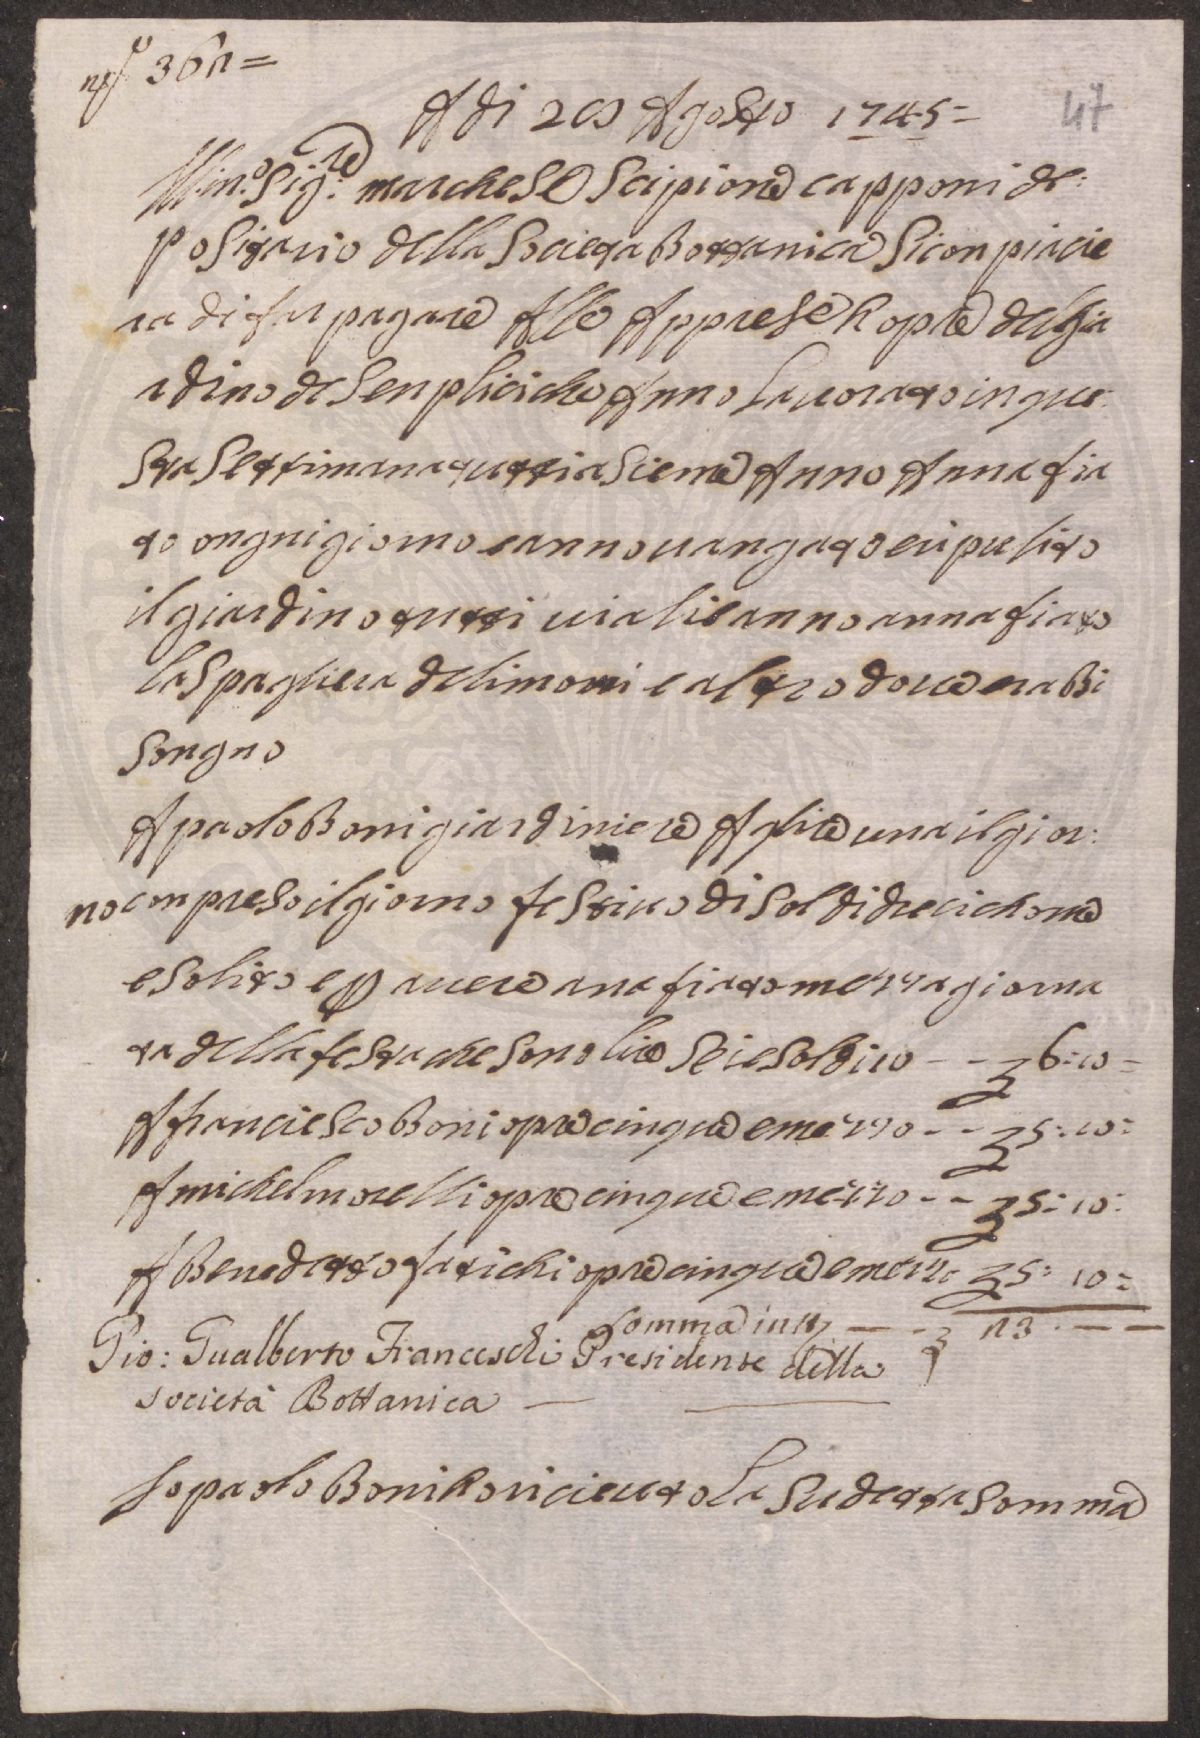 No 361=
A di 20 Agosto 1745= 47
Ill:mo Sig:re marchese Scipione capponi de:
positario della Societa Bottanica Si conpiacie
ra di far pagare Alle Apprese k opre del gia
rdino de Senplici che Anno Lavorato in que:
sta settimana tutti asieme Anno Anna fia
to ongni giorno e anno vangato e ripulito
il giardino tutti viali e anno anna fiato
la Spagliera de limoni e altro dove era bi
songno
A paolo Boni giardiniere A lire una il gior:
no conpreso il giorno festivo di soldi dieci chome
e solito e p avere ana fiato mezza giorna
ta della festa che sono lire sei e soldi 10 - - 6:10=
A franciesco Boni opre cinque e mezzo - - 5:10:
A michel morelli opre cinque e mezzo - - 5:10:
A Benedetto fatichi opre cinque e mezzo 5:10=
Somma in tt — - 23.——
Gio: Gualberto Franceschi Presidente della
società Bottanica —
Io paolo Boni ko riceuto La sudetta somma